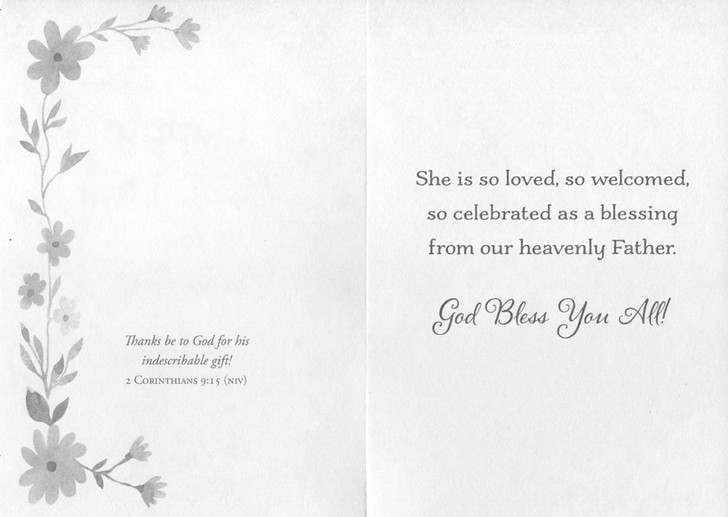 Thanks be to God for his
indescribable gift!
2 Corinthians 9:15 (NIV)
She is so loved, so welcomed,
so celebrated as a blessing
from our heavenly Father.
God Bless You All!